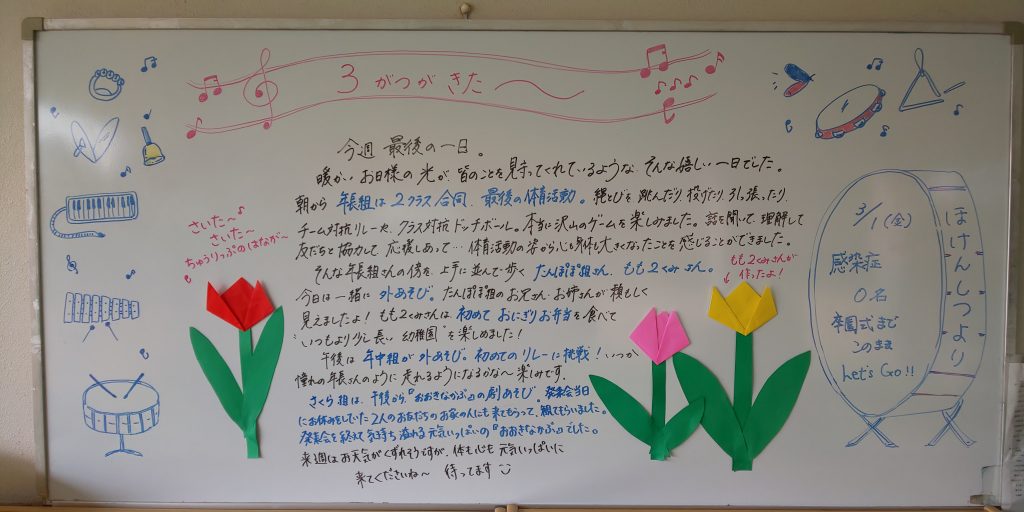 3がつがきた〜
今週 最後の一日。
暖かいお日様の光が皆のことを見守ってくれているような そんな嬉しい一日でした。
朝から 年長組は2クラス合同、最後の体育活動。縄とびを跳んだり、投げたり、引っ張ったり、
チーム対抗リレーや、クラス対抗ドッヂボール。本当に沢山のゲームを楽しみました。話を聞いて理解して
友だちと協力して 応援しあって… 体育活動の姿から心も身体も大きくなったことを感じることができました。
そんな年長組さんの傍を、上手に並んで歩く たんぽぽ組さん、もも2くみさん。
今日は一緒に 外あそび。たんぽぽ組のお兄さん・お姉さんが頼もしく
見えましたよ！もも2くみさんは 初めて おにぎりお弁当を食べて
"いつもより少し長い 幼稚園"を楽しめました！
午後は 年中組が外あそび。初めてのリレーに挑戦！いつか
憧れの年長さんのように 走れるようになるかな〜 楽しみです。
さくら組は、午後から『おおきなかぶ』の劇あそび。発表会当日
にお休みをしていた2人のお友だちのお家の人にも来てもらって、観てもらいました。
発表会を終えて 気持ち溢れる元気いっぱいの『おおきなかぶ』でした。
来週はお天気がくずれそうですが、体も心も 元気いっぱいに
来てくださいね〜 待ってます
さいた〜♪
さいた〜
ちゅうりっぷのはなが〜
もも2くみさんが
作ったよ！
ほけんしつより
3/1(金)
感染症
0名
卒園式まで
このまま
Let's Go!!